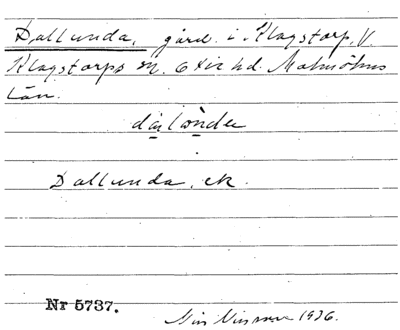 Dallunda, gård i Klagstorp, V
Klagstorps sn. Oxie hd. Malmöhus
Län.
dalònda
Dallunda, ek.
Nr 5737.
Nils Nilsson 1936.